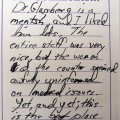 Dr. Glenberg is a
mensch, and I liked
him lots. The
entire staff was very
nice, but the woman
at the counter seemed
awfully uninformed
on medical issues.
Yet, and yet, this
is the best place